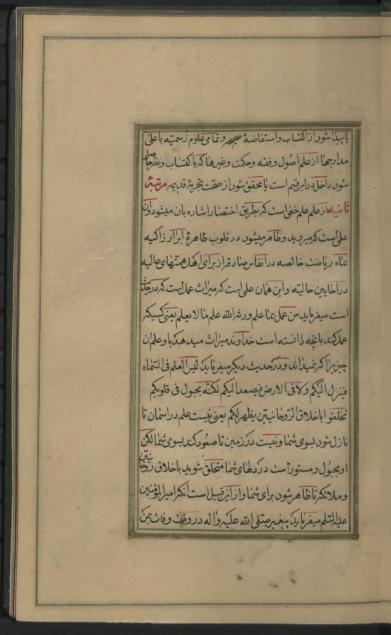 یا پیدا شود از اکتساب و استفاضهٔ صحیحه و تمامی علوم رسمیه با علی
مدارجها از علم اصول و فقه و حکمت و غیرها که باکتساب و نظر حاصل
شود داخل در این قسم است یا محقق شود از صحت تجربهٔ قدیمه مرتبهٔ
ثانیه از علم علم خفی است که بطریق اختصار اشاره بان میشود و آن
علمی است که میروید و ظاهر میشود در قلوب طاهرهٔ ابرار زاکیه
بماء ریاضت خالصه در انفاس صادقه از برای اهل همتهای عالیه
در احایین خالیه و این همان علمی است که میراث عمل است که در حدیث
است میفرماید من عمل بما علم ورثه الله علم ما لا یعلم یعنی کسیکه
عمل کند بآنچه دانسته است خداوند میراث میدهد باو علم آن
چیز را که نمیداند و در حدیث دیگر میفرماید لیس العلم فی السماء
فینزل الیکم ولا فی الارض فیصعد الیکم لکنه مجبول فی قلوبکم
تخلقوا باخلاق الروحانیین یظهر لکم یعنی نیست علم در آسمان تا
نازل شود بسوی شما و نیست در زمین تا صعود کند بسوی شما لکن
او مجبول و مستور است در دلهای شما متخلق شوید باخلاق روحانیین
و ملائکه تا ظاهر شود برای شما و از این قبیل است آنکه امیرالمؤمنین
علیه السلم میفرماید که پیغمبر صلی الله علیه و آله در وقت وفات بمن